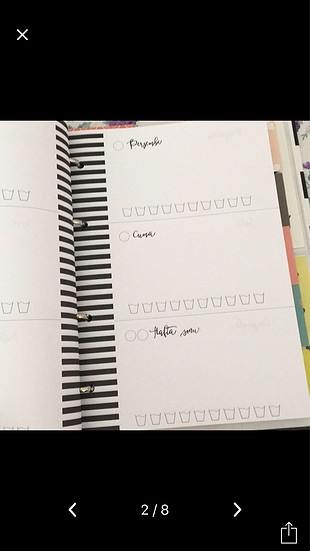 Perşembe
Cuma
Hafta sonu
2/8